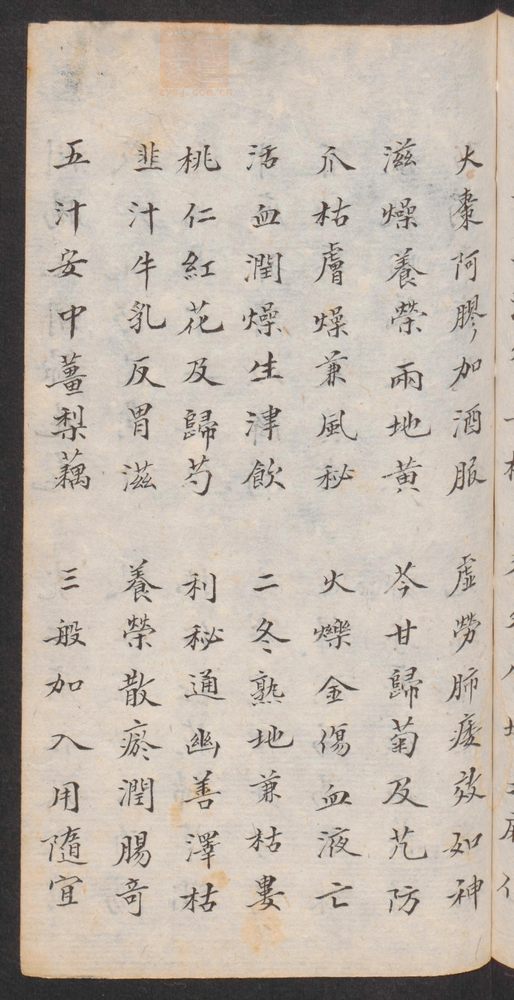 大棗阿膠加酒服　虛勞肺痿效如神
滋燥養榮兩地黃　芩甘歸菊及艽防
爪枯膚燥兼風秘　火爍金傷血液亡
活血潤燥生津飲　二冬熟地兼栝蔞
桃仁紅花及歸芍　利秘通幽善澤枯
韭汁牛乳反胃滋　養榮散瘀潤腸奇
五汁安中薑梨藕　三般加入用隨宜